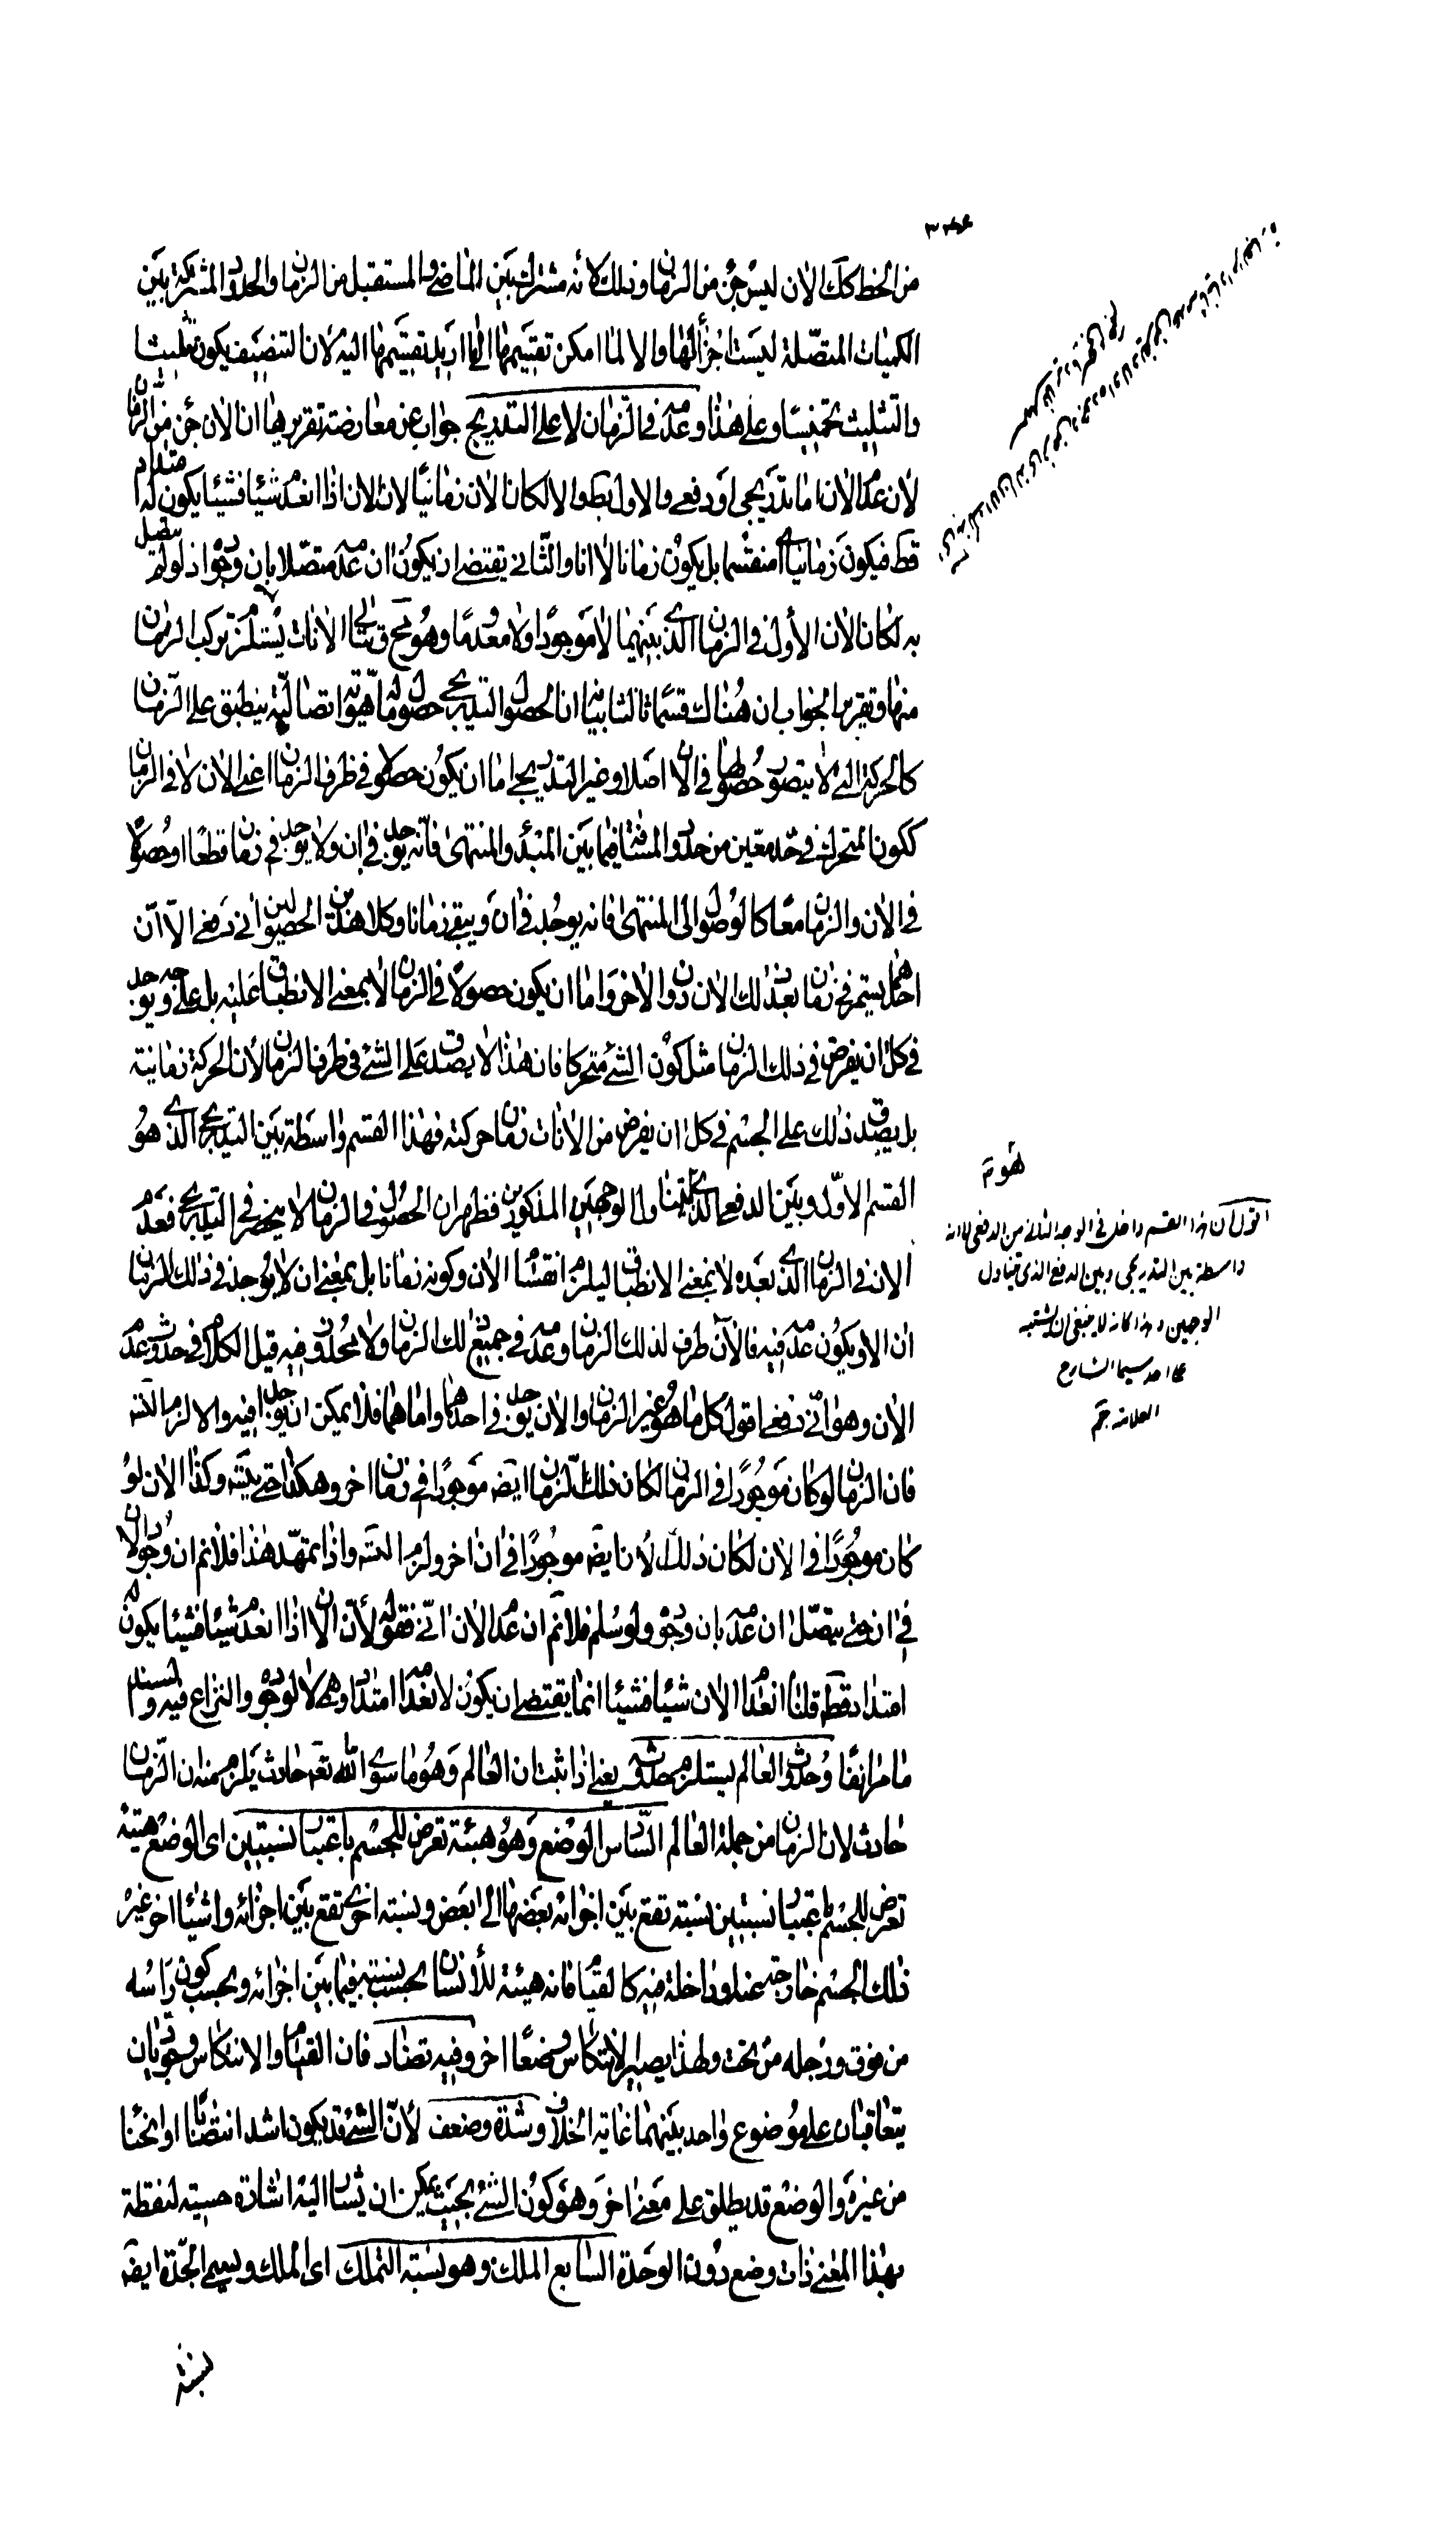 من الخط كك الان ليس جزء من الزمان وذلك لانه مشترك بين الماضى والمستقبل من الزمان والحدود المشتركة بين
الكميات المتصلة ليست اجزأ لها والا لما امكن تقسيمها الى اربل تقسيمها اليه لان التنصيف يكون تثليثا
والتثليث تخميسا وعلى هذا وعدمه فى الزمان لا على التدريج جواب عن معارضة تقريرها ان الان جزء من الزمان
لان عدم الان اما تدريجى او دفعى والاول بط والا لكان الان زمانيا لان الان اذا انعدم شيئا فشيئا يكون له امتداد
قط فيكون زمانيا اى منقسما بل يكون زمانا لا انا والثانى يقتضى ان يكون ان عدمه متصلا بان وجوده اذ لو لم يتصل
به لكان الان الأول فى الزمان الذى بينهما لا موجودا ولا معدوما وهو مح وتتالى الانات يستلزم تركب الزمان
منها وتقرير الجواب ان هناك قسما ثالثا بيانه ان الحصول التدريجى حصول ماله هوية اتصالية ينطبق على الزمان
كالحركة التى لا يتصور حصولها فى الان اصلا وغير التدريجى اما ان يكون حصوله فى ظرف الزمان اعنى الان لا فى الزمان
ككون المتحرك فى حد معين من حدود المسافة فيما بين المبدأ والمنتهى فانه يوجد فى ان ولا يوجد فى زمان قطعا او حصوله
فى الان والزمان معا كالوصول الى المنتهى فانه يوجد فى ان ويبقى زمانا وكلا هذين الحصولين انى دفعى الا ان
احدهما يستمر فى زمان بعد ذلك الان دون الاخر واما ان يكون حصوله فى الزمان لا بمعنى الانطباق عليه بل على وجه يوجد
فى كل ان يفرض فى ذلك الزمان مثل كون الشئ متحركا فان هذا لا يصدق على الشئ فى طرف الزمان لأن الحركة زمانية
بل يصدق ذلك على الجسم فى كل ان يفرض من الانات زمان حركته فهذا القسم واسطة بين التدريجى الذى هو
القسم الاول وبين الدفعى الذى يتناول الوجهين المذكورين فظهر ان الحصول فى الزمان لا ينحصر فى التدريجى فعدم
الان فى الزمان الذى بعده لا بمعنى الانطباق ليلزم انقسام الان وكونه زمانا بل بمعنى ان لا يوجد فى ذلك الزمان
ان الا ويكون عدمه فيه فالان طرف لذلك الزمان وعدمه فى جميع ذلك الزمان ولا محذور فيه قيل الكلام فى حدوث عدم
الان وهو انى دفعى اقول كل ما هو غير الزمان والان يوجد فى احدهما واما هما فلا يمكن ان يوجدا فيه والا لزم التسه
فان الزمان لو كان موجودا فى الزمان لكان ذلك الزمان ايضه موجودا فى زمان اخر وهكذا حتى يتسه وكذا الان لو
كان موجودا فى الان لكان ذلك الان ايضه موجودا فى ان اخر ولزم التسه واذا تمهد هذا فلا نم ان وجود الان
فى ان حتى يتصل ان عدمه بان وجوده ولو سلم فلا نم ان عدم الان انى فقوله لأن الان اذا انعدم شيئا فشيئا يكون له
امتداد قطه قلنا انعدام الان شيئا فشيئا انما يقتضى ان يكون لانعدامه امتداد وهى لا لوجوده والنزاع فيه والسند
ما مر انفا وحدوث العالم يستلزم حدوثه يعنى اذا ثبت ان العالم وهو ما سوى الله تعه حادث يلزم منه ان الزمان
حادث لان الزمان من جملة العالم السادس الوضع وهو هيئة تعرض للجسم باعتبار نسبتين اى الوضع هيئة
تعرض للجسم باعتبار نسبتين نسبته تقع بين اجزائه بعضها الى بعض ونسبته اخرى تقع بين اجزائه واشيئا اخر غير
ذلك الجسم خارجة عنه او داخلة فيه كالقيام فانه هيئة للأنسان بحسب نسبته فيما بين اجزائه وبحسب كون رأسه
من فوق ورجله من تحت ولهذا يصير الانتكاس وضعا اخر وفيه تضاد فان القيام والانتكاس وجوديان
يتعاقبان على موضوع واحد بينهما غاية الخلاف وشدة وضعف لأن الشئ قد يكون اشد انتصابا او انحنا
من غيره والوضع قد يطلق على معنى اخر وهو كون الشئ بحيث يمكن ان يشار اليه اشارة حسية لنقطة
بهذا المعنى ذات وضع دون الوحدة السابع الملك وهو نسبة التملك اى الملك ويسمى الجدة ايضه
نسبة
لقوله
اقول كان هذا القسم داخل فى الوجه الثانى من الدفعى لا انه
واسطة بين التدريجى وبين الدفع الذى يتناول
الوجهين وهذا كانه لا ينبغى ان يشتبه
على احد سيما الشارح
العلامة